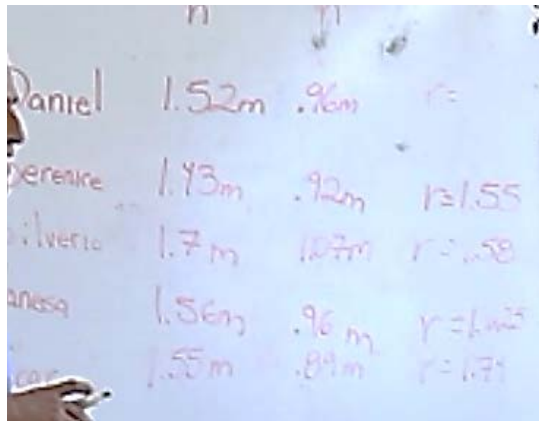 h h
Daniel 1.52m .96m r=
perenice 1.43m .92m r=1.55
ilverio 1.7m 1.07m r=1.58
anesa 1.56m .96m
1.55m .89m r=1.74